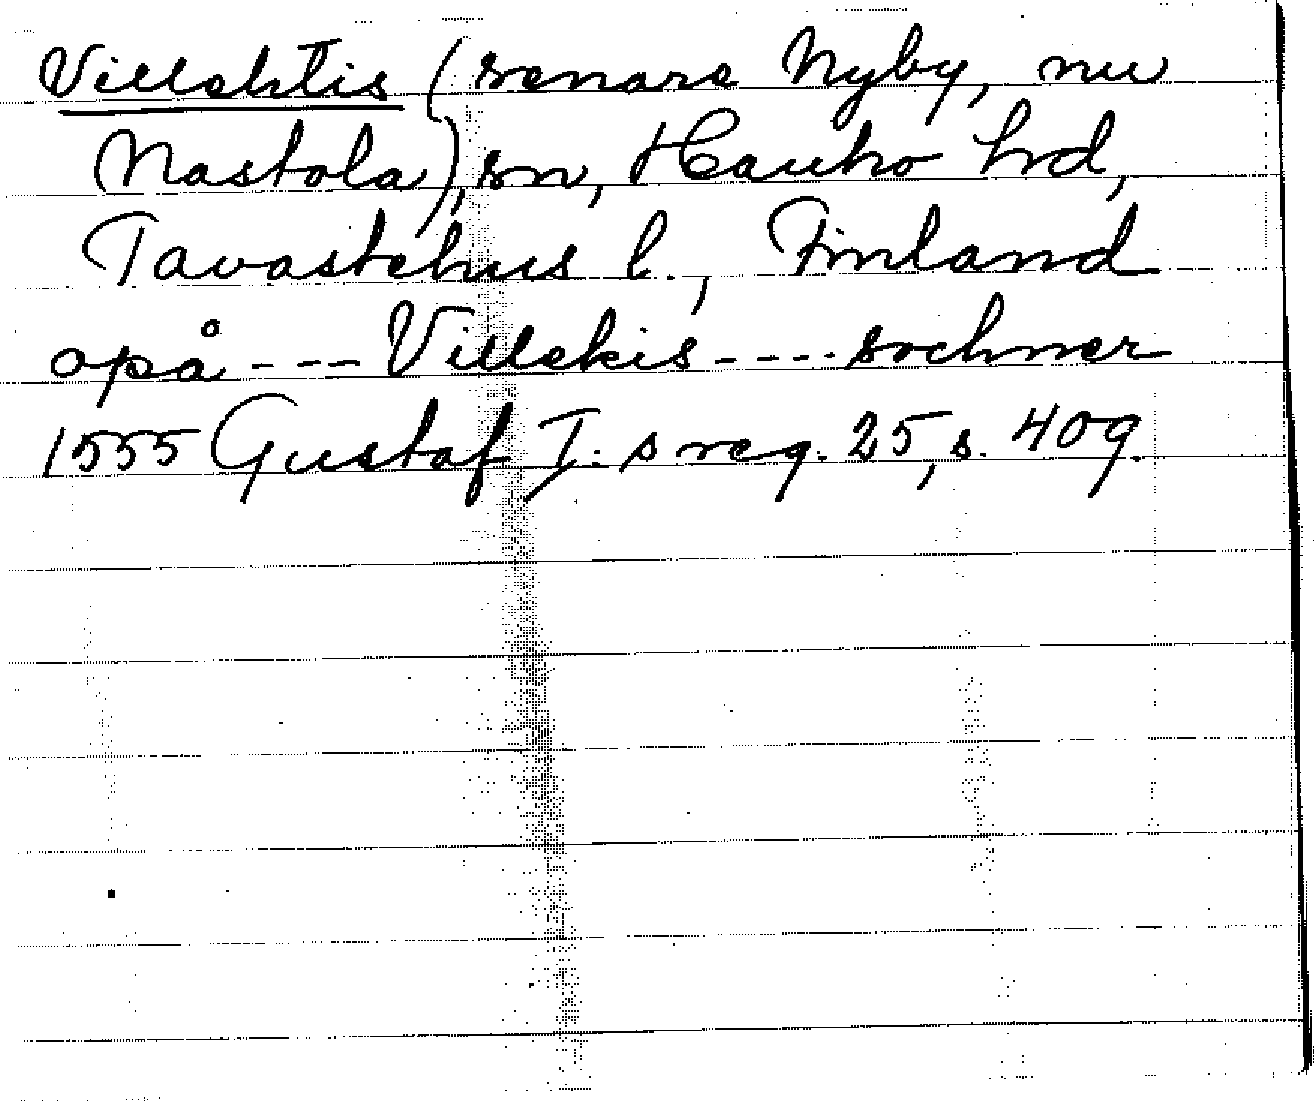 Villektis (senare Nyby, nu
Nastola), sn, Hauho hrd,
Tavastehus l., Finland
opå --- Villekis ---- sochner
1555 Gustaf I:s reg. 25, s. 409.